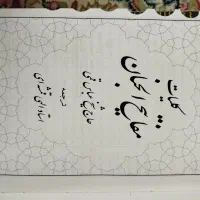 کلیات
مفاتیح الجنان
حاج شیخ عباس قمی
ترجمه
استاد الهی قمشه‌ای